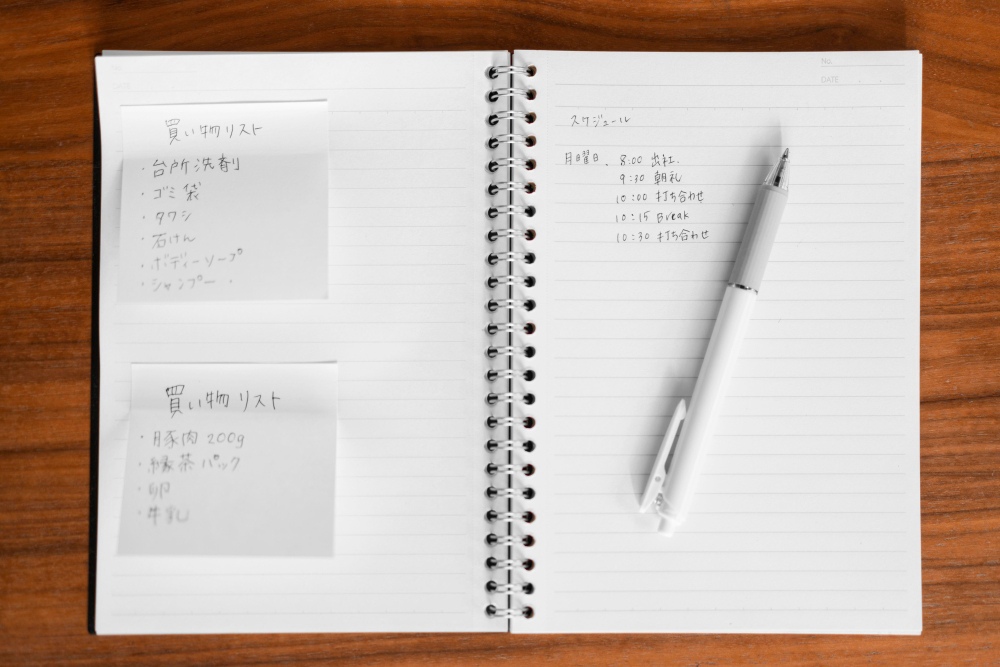 買い物リスト
・台所洗剤
・ゴミ袋
・タワシ
・石けん
・ボディーソープ
・シャンプー
買い物リスト
・豚肉 200g
・緑茶パック
・卵
・牛乳
No.
DATE
スケジュール
月曜日. 8:00 出社.
9:30 朝礼
10:00 打ち合わせ
10:15 Break
10:30 打ち合わせ